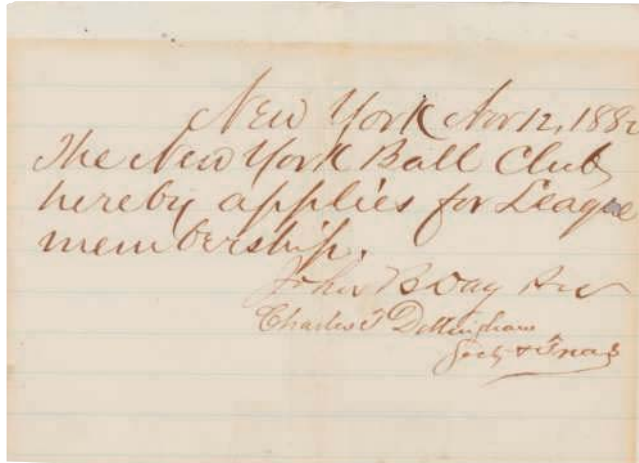 New York Nov 12, 1882
The New York Ball Club
hereby applies for League
membership.
John B Day Pres
Charles T Dillingham
Secty & Treas